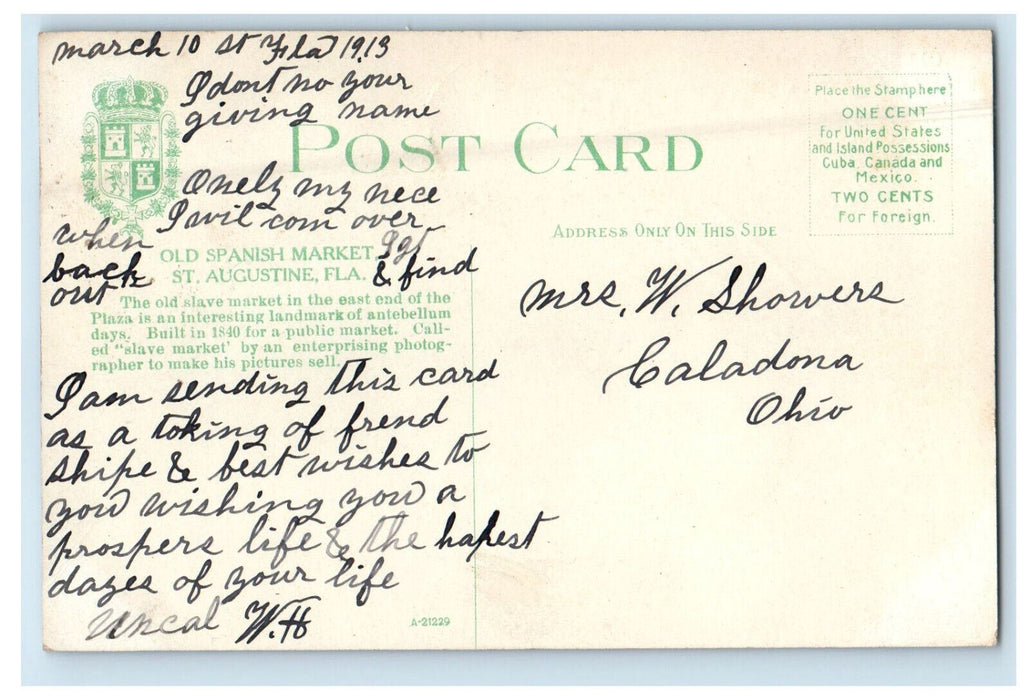 march 10 st Fla 1913
I dont no your
giving name
Onely my nece
I wil com over
when I gt
back & find
out
POST CARD
OLD SPANISH MARKET,
ST. AUGUSTINE, FLA.
The old slave market in the east end of the
Plaza is an interesting landmark of antebellum
days. Built in 1840 for a public market. Call-
ed "slave market' by an enterprising photog-
rapher to make his pictures sell.
I am sending this card
as a toking of frend
shipe & best wishes to
you wishing you a
prospers life & the hapest
dayes of your life
Uncal W.H
A-21229
Place the Stamp here
ONE CENT
For United States
and Island Possessions
Cuba, Canada and
Mexico.
TWO CENTS
For Foreign.
ADDRESS ONLY ON THIS SIDE
mrs, W. Showers
Caladona
Ohio